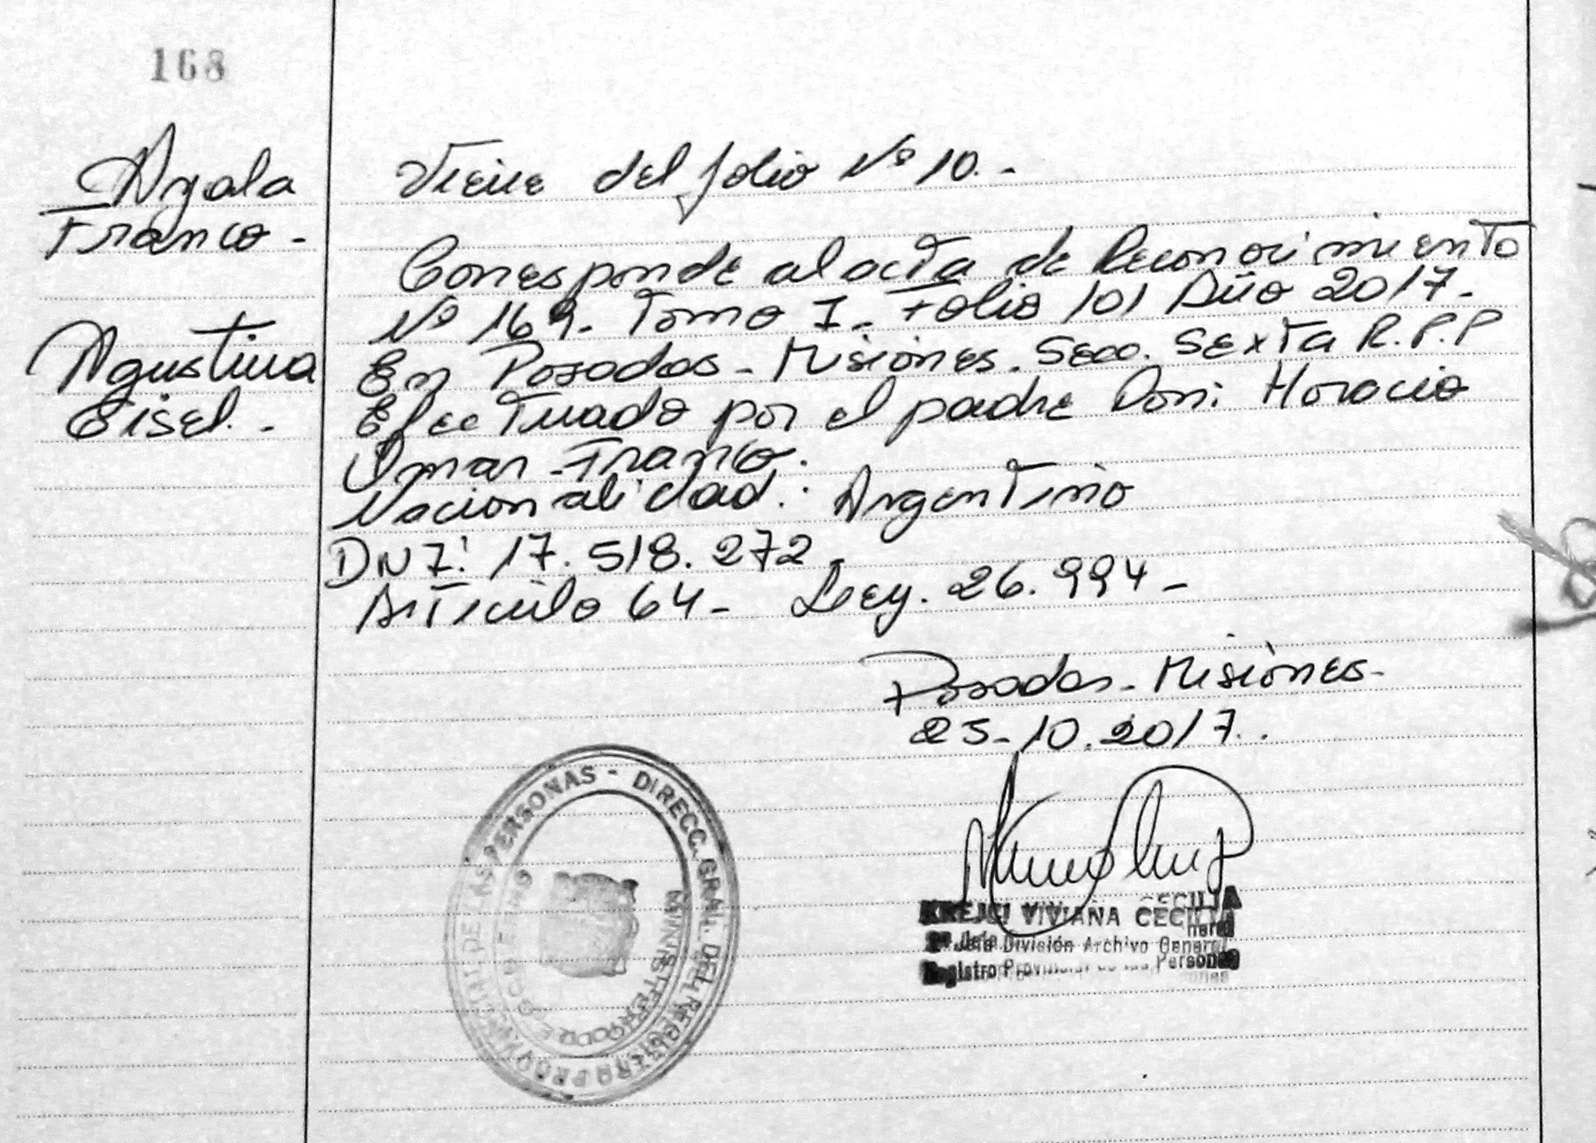 168
Ayala
Franco -
Agustina
Eisel. -
Viene del folio Nº 10. -
Corresponde al acta de Reconocimiento
Nº 169. Tomo I - Folio 101 Año 2017.
En Posadas - Misiones. Secc. Sexta R.P.P
Efectuado por el padre Don: Horacio
Omar Franco.
Nacionalidad: Argentino
DNI: 17.518.272.
Artículo 64 - Ley. 26.994 -
Posadas - Misiones -
25-10.2017.
KREJCI VIVIANA CECILIA
2ª Jefa División Archivo General
Registro Provincial de las Personas
DIRECC. GRAL. DEL REGISTRO PROVINCIAL DE LAS PERSONAS -
MINISTERIO DE GOBIERNO